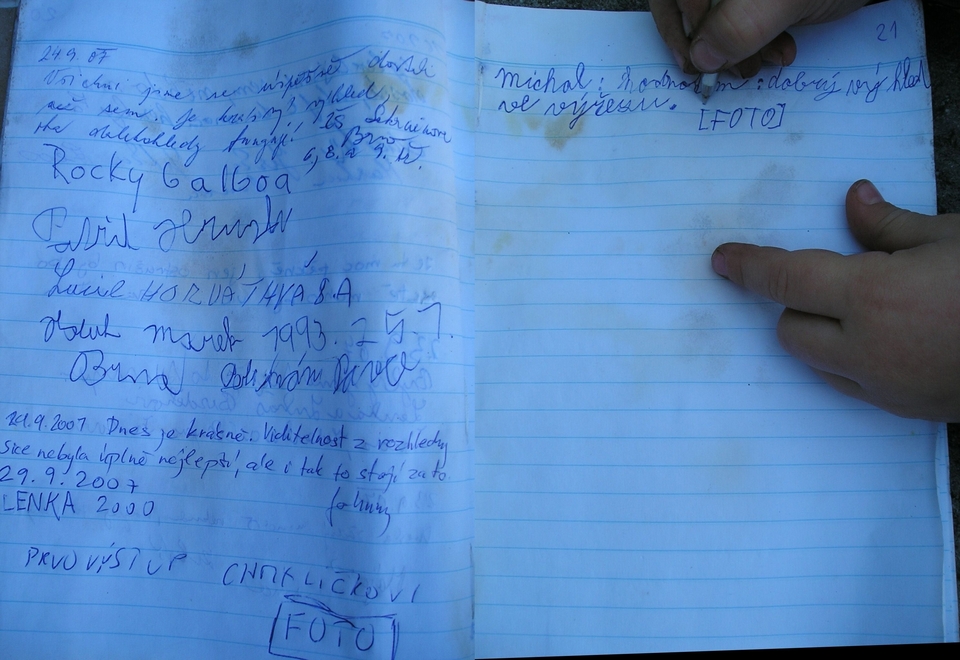 24.9.07
Všichni jsme se úspěšně dostali
až sem. Je krásný výhled
dalekohledy fungují! ZŠ
Brno
6, 8. a 9. tř.
Rocky balboa
HORVÁTHVÁ 8.A
marek 1993.
Brno
29.9.2007 Dnes je krásně. Viditelnost z rozhledny
sice nebyla úplně nejlepší, ale i tak to stojí za to.
29.9.2007
LENKA 2000
PRVOVÝSTUP CHMELIČKOVI
FOTO
21
michal: : dobrý výhled
ve výřezu.
[FOTO]